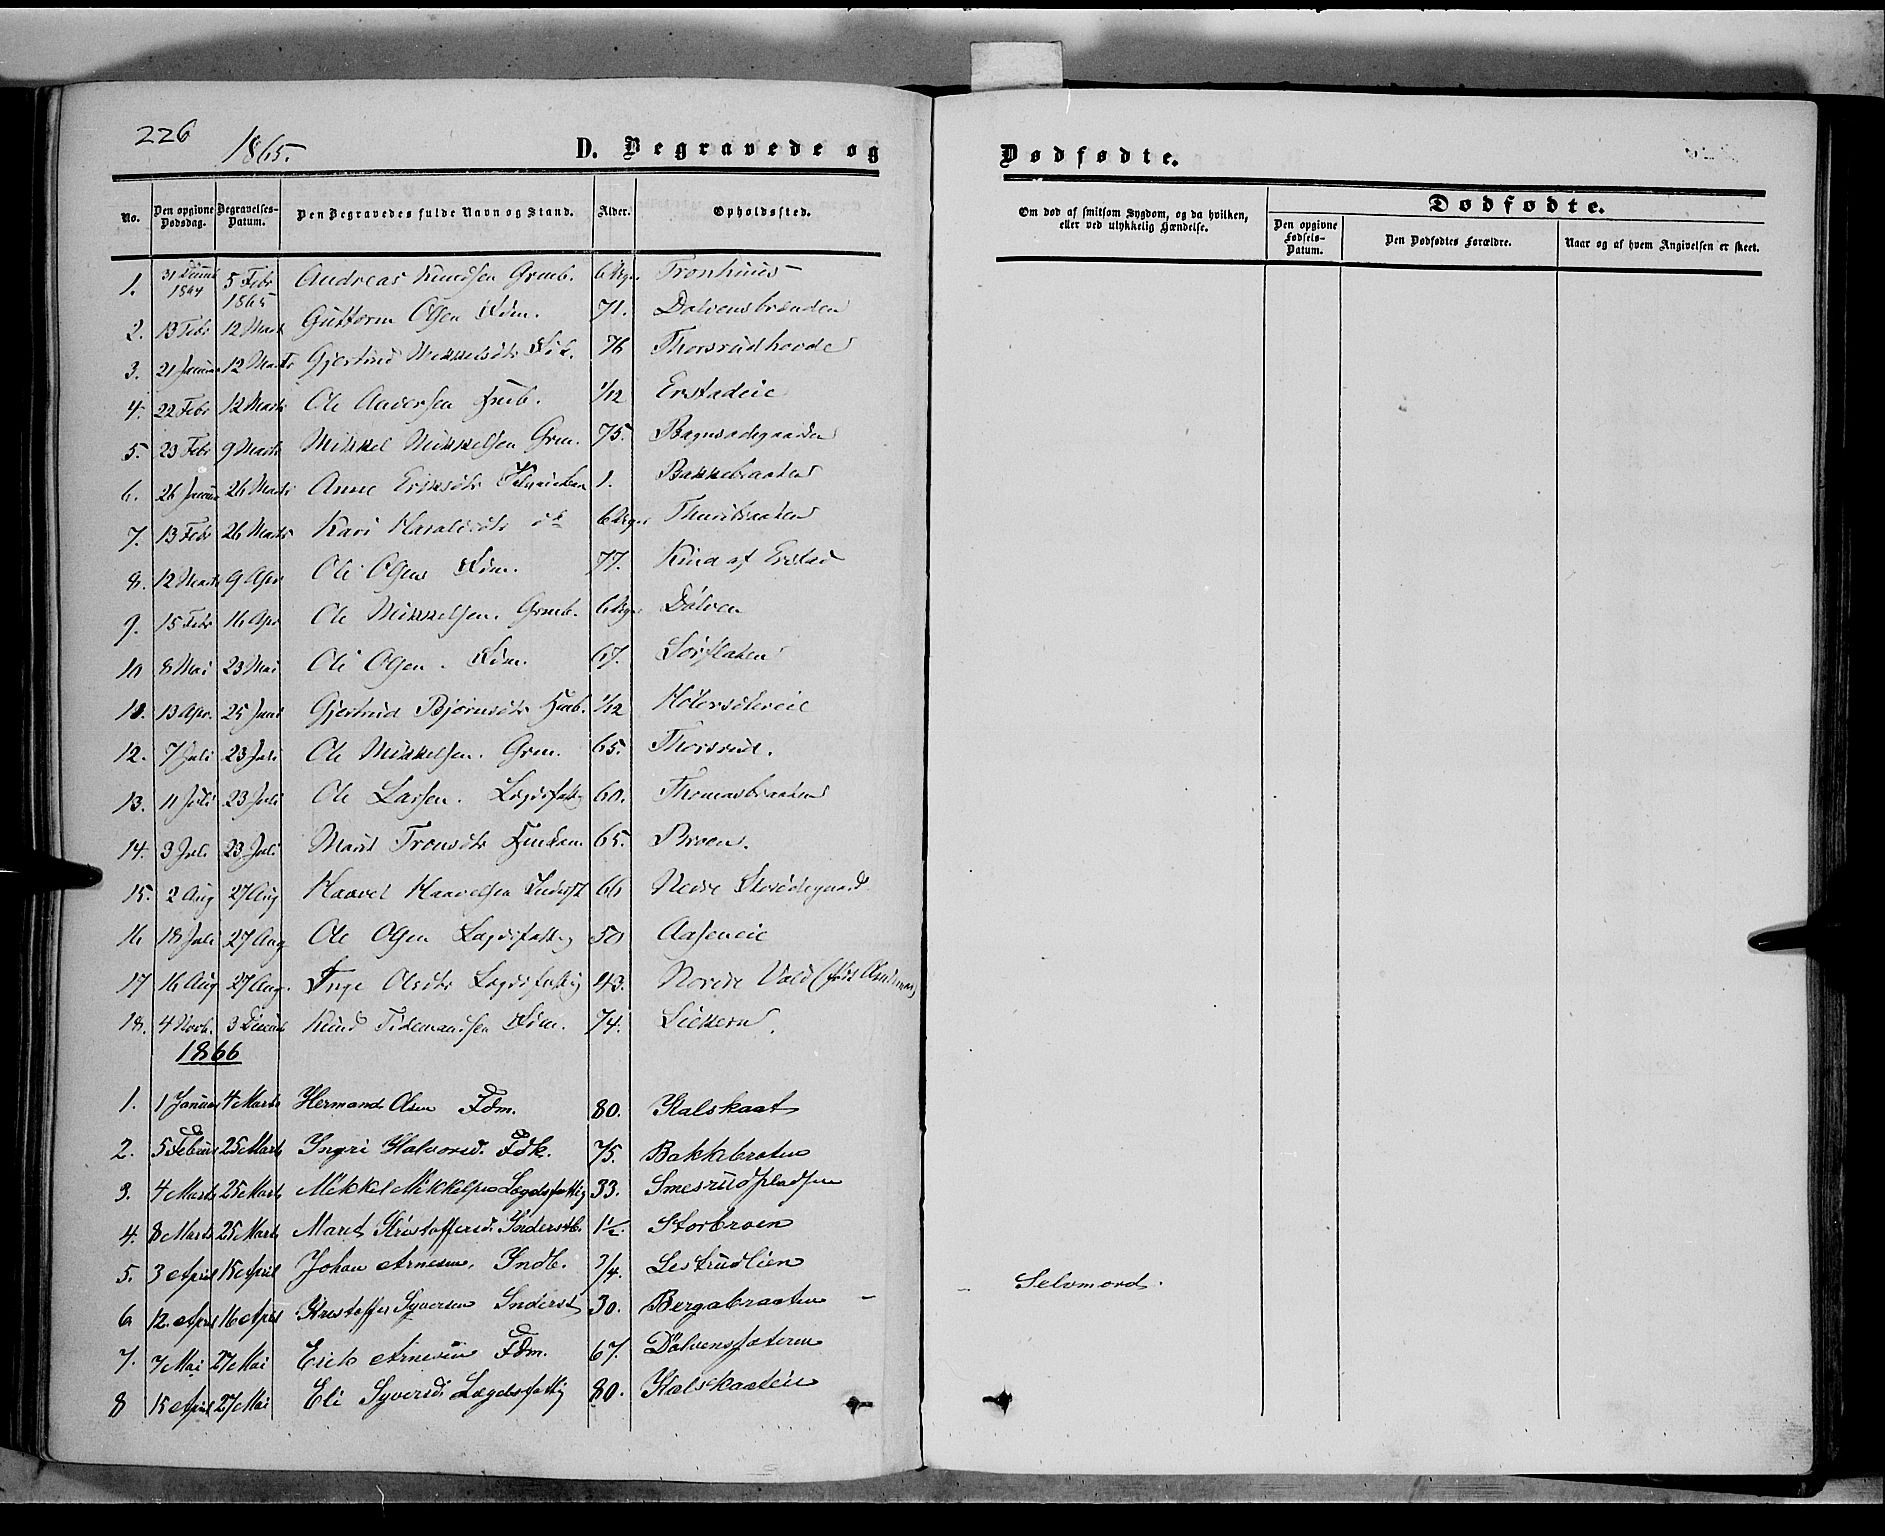 226
1865.
D. Begravede og
Dødfødte.
No. Den opgivne Dødsdag. Begravelses-Datum. Den Begravedes fulde Navn og Stand. Alder. Opholdssted.
Om død af smitsom Sygdom, og da hvilken, eller ved ulykkelig Hændelse.
Dødfødte.
Den opgivne Fødsels-Datum. Den Dødfødtes Forældre. Naar og af hvem Angivelsen er skeet.
1. 31 1864 5 Febr 1865 Andreas Knudsen Grmb. 6 Tronhuus
2. 13 Febr 12 Marts Guttorm Olsen Fdm. 71. Dølvensbraaden
3. 21 Januar 12 Marts Gjertrud Mikkelsdtr Fdk. 76 Thorsrudhovde
4. 22 Febr 12 Marts Ole Andersen Hmb. 1/12 Erstadeie
5. 23 Febr 9 Marts Mikkel Mikkelsen Grm. 75. Bagnsadegaarden
6. 26 Januar 26 Marts Anne Eriksdtr 1. Bakkebraaten
7. 13 Febr 26 Marts Kari Haraldsdtr do 6 Thuribraaten
8. 12 Marts 9 Apr Ole Olsen Fdm. 77. af Erstad
9. 15 Febr 16 Apr Ole Mikkelsen. Grmb. 6 Dølven
10 8 Mai 23 Mai Ole Olsen. Fdm. 67. Sørflaten
11. 13 Apr. 25 Juni Gjertrud Bjørnsdtr Hmb. 1/12
12. 7 Juli 23 Juli Ole Mikkelsen. Grm. 65. Thorsrud.
13. 11 Juli 23 Juli Ole Larsen. Lægdsfattig 60. Thomasbraaten
14. 3 Juli 23 Juli Marit Tronsdtr 65. Broen.
15. 2 Aug 27 Aug Haavel Haavelsen Inderst 66 Nedre
16 18 Juli 27 Aug Ole Olsen Lægdsfattig 50 Aaseneie
17 16 Aug 27 Aug. Inge Olsdtr Lægdsfattig 43. Nordre Vold
18. 4 Novb. 3 Decemb Knud Tidemansen Fdm. 74. Liekern.
1866
1. 1 Januar 4 Marts Hermand Olsen Fdm. 80. Kalskaat
2. 5 Februar 25 Marts Yngri Halvorsd. Fdk. 75. Bakkebroten
3. 4 Marts 25 Marts Mikkel Mikkelsen Lægdsfattig 33. Smesrudspladsen
4. 8 Marts 25 Marts Marit Kristoffersd. Inderstb. 1½. Storbroen
5. 3 April 15 April Johan Arnesen. Indb. 3/4. Lestrudlien
6 12. April 16 April Kristoffer Syversen Inderst 30. Bergabraaten –
– Selvmord.
7. 7 Mai 27 Mai Erik Arnesen Fdm. 67. Dølvenssæteren
8 15 April 27 Mai Eli Syversd. Lægdsfattig 80. Kalskaaten